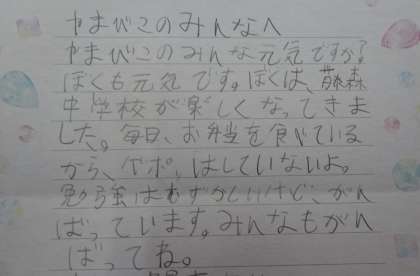 やまびこのみんなへ
やまびこのみんな元気ですか?
ぼくも元気です。ぼくは、藤森
中学校が楽しくなってきま
した。毎日、お弁当を食べている
から、はしていないよ。
勉強はむずかしいけど、がん
ばっています。みんなもがん
ばってね。